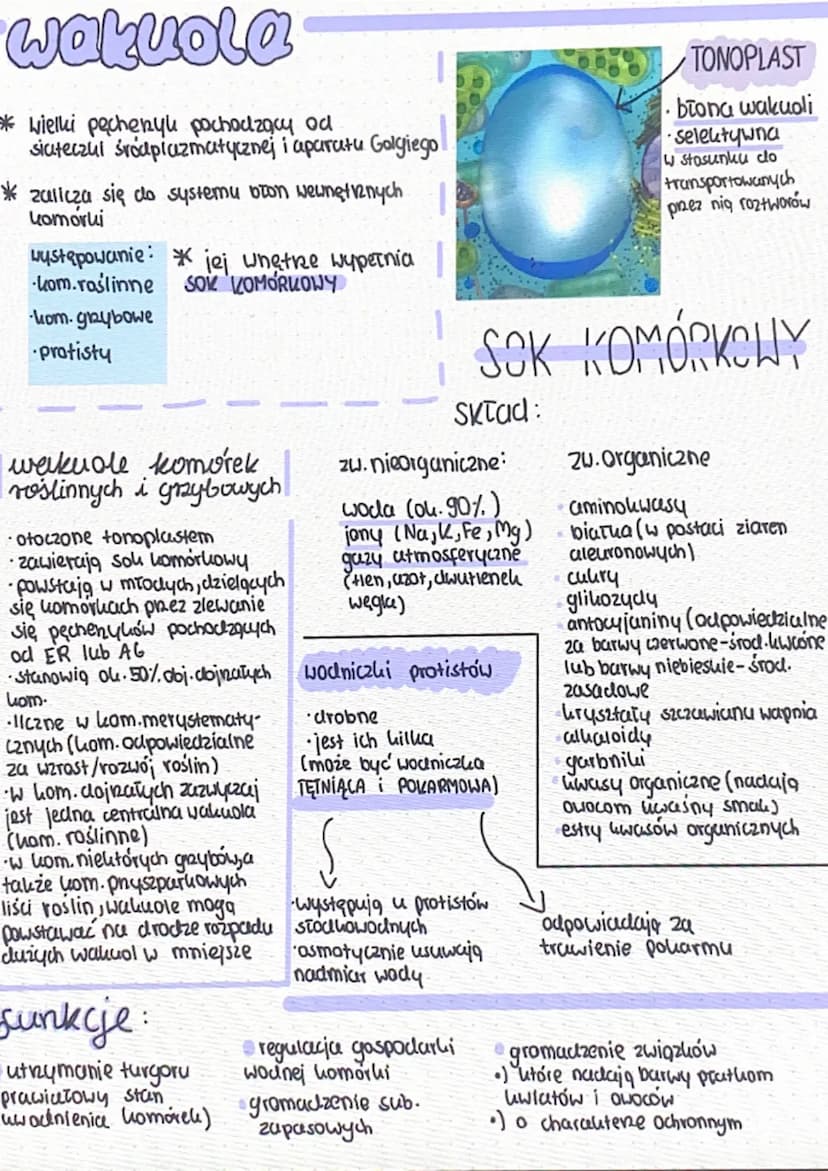 wakuola
* wielki pęcherzyk pochodzący od
siateczki śródplazmatycznej i aparatu Golgiego
* zalicza się do systemu błon wewnętrznych
komórki
występowanie:
·kom.roślinne
·kom.grzybowe
·protisty
* jej wnętrze wypełnia
SOK KOMÓRKOWY
TONOPLAST
· błona wakuoli
· selektywna
w stosunku do
transportowanych
przez nią roztworów
SOK KOMÓRKOWY
skład:
zw.nieorganiczne:
woda (ok.90%)
jony (Na,K,Fe,Mg)
gazy atmosferyczne
(tlen,azot,dwutlenek
węgla)
zw.organiczne
aminokwasy
białka (w postaci ziaren
aleuronowych)
cukry
glikozydy
antocyjaniny (odpowiedzialne
za barwy czerwone-środ.kwaśne
lub barwy niebieskie-środ.
zasadowe
kryształy szczawianu wapnia
alkaloidy
garbniki
kwasy organiczne (nadają
owocom kwaśny smak)
estry kwasów organicznych
wakuole komórek
roślinnych i grzybowych
·otoczone tonoplastem
·zawierają sok komórkowy
·powstają w młodych,dzielących
się komórkach przez zlewanie
się pęcherzyków pochodzących
od ER lub AG
·stanowią ok.50% obj.dojrzałych
kom.
·liczne w kom.merystematy-
cznych (kom.odpowiedzialne
za wzrost/rozwój roślin)
·w kom.dojrzałych zazwyczaj
jest jedna centralna wakuola
(kom. roślinne)
·w kom.niektórych grzybów,a
także kom.przyszparkowych
liści roślin,wakuole mogą
powstawać na drodze rozpadu
dużych wakuol w mniejsze
wodniczki protistów
·drobne
·jest ich kilka
(może być wodniczka
TĘTNIĄCA i POKARMOWA)
·występują u protistów
słodkowodnych
·osmotycznie usuwają
nadmiar wody
odpowiadają za
trawienie pokarmu
funkcje:
utrzymanie turgoru
prawidłowy stan
uwodnienia komórek)
regulacja gospodarki
wodnej komórki
gromadzenie sub.
zapasowych
gromadzenie związków
•) które nadają barwy płatkom
kwiatów i owoców
•) o charakterze ochronnym